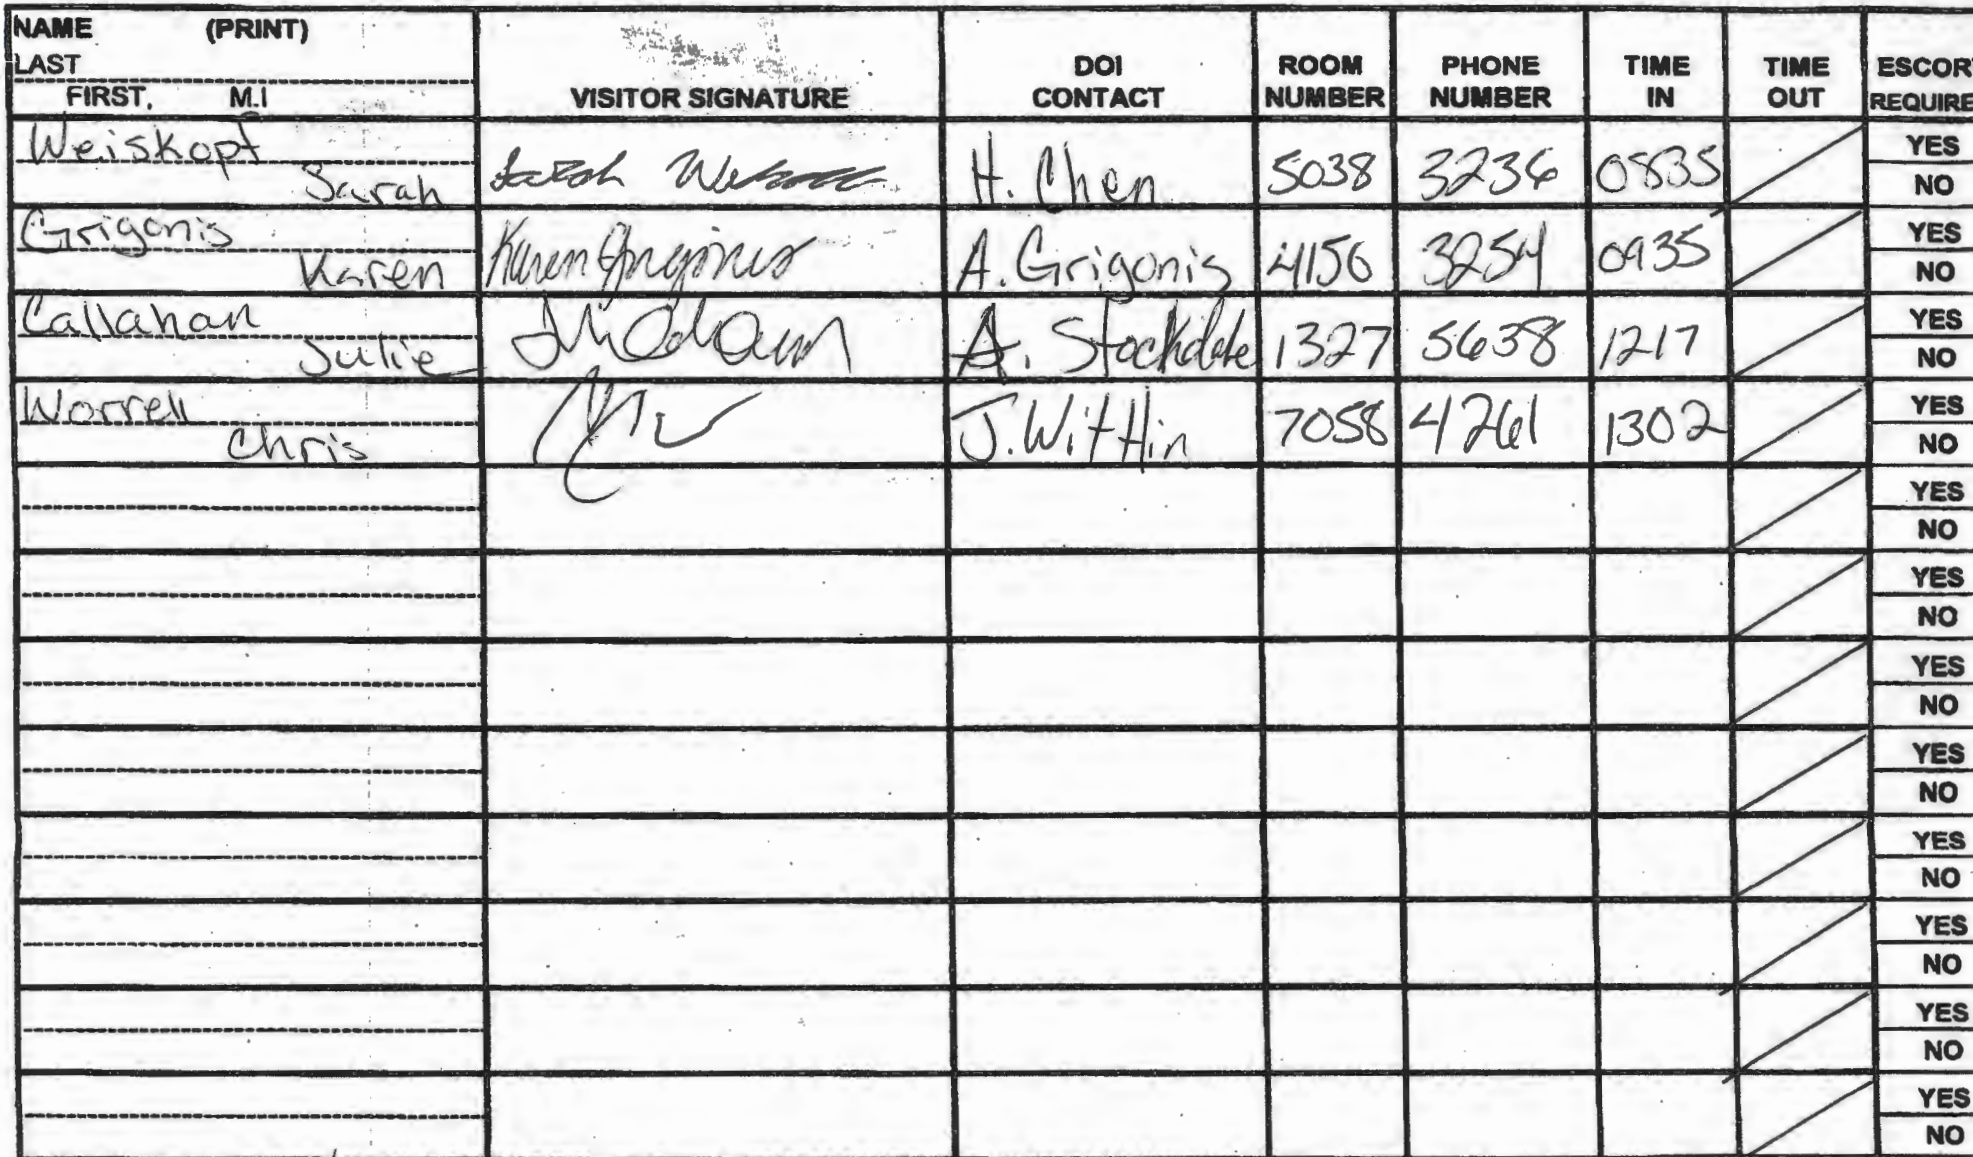 NAME (PRINT)
LAST
FIRST, M.I
VISITOR SIGNATURE
DOI
CONTACT
ROOM
NUMBER
PHONE
NUMBER
TIME
IN
TIME
OUT
ESCOR
REQUIRE
Weiskopf
Sarah
Sarah
H. Chen
5038
3236
0835
YES
NO
Grigonis
Karen
Karen Grigonis
A. Grigonis
4156
3254
0935
YES
NO
Callahan
Julie
A. Stockdale
1327
5638
1217
YES
NO
Worrell
Chris
J. Wittlin
7058
4261
1302
YES
NO
YES
NO
YES
NO
YES
NO
YES
NO
YES
NO
YES
NO
YES
NO
YES
NO